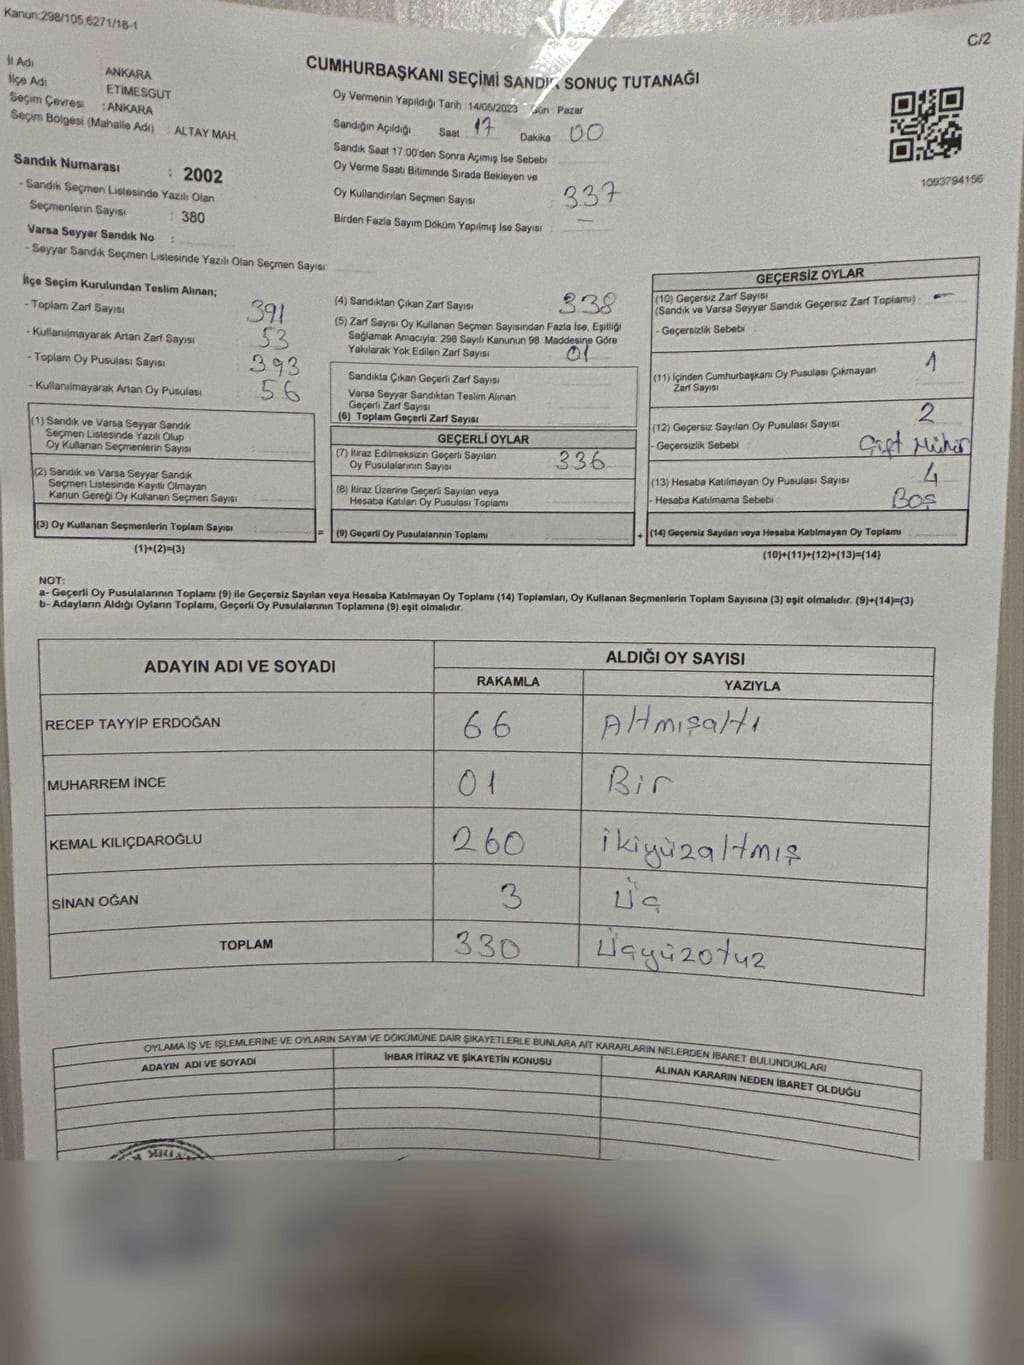 Kanun:298/105,6271/18-1
C/2
İl Adı ANKARA
İlçe Adı ETİMESGUT
Seçim Çevresi : ANKARA
Seçim Bölgesi (Mahalle Adı) : ALTAY MAH.
Sandık Numarası : 2002
- Sandık Seçmen Listesinde Yazılı Olan
Seçmenlerin Sayısı : 380
Varsa Seyyar Sandık No :
- Seyyar Sandık Seçmen Listesinde Yazılı Olan Seçmen Sayısı:
CUMHURBAŞKANI SEÇİMİ SANDIK SONUÇ TUTANAĞI
Oy Vermenin Yapıldığı Tarih : 14/05/2023 Gün : Pazar
Sandığın Açıldığı Saat 17 Dakika 00
Sandık Saat 17:00'den Sonra Açımış İse Sebebi
Oy Verme Saati Bitiminde Sırada Bekleyen ve
Oy Kullandırılan Seçmen Sayısı : 337
Birden Fazla Sayım Döküm Yapılmış İse Sayısı : –
1093794156
İlçe Seçim Kurulundan Teslim Alınan;
- Toplam Zarf Sayısı 391
- Kullanılmayarak Artan Zarf Sayısı 53
- Toplam Oy Pusulası Sayısı 393
- Kullanılmayarak Artan Oy Pusulası 56
(1) Sandık ve Varsa Seyyar Sandık
Seçmen Listesinde Yazılı Olup
Oy Kullanan Seçmenlerin Sayısı
(2) Sandık ve Varsa Seyyar Sandık
Seçmen Listesinde Kayıtlı Olmayan
Kanun Gereği Oy Kullanan Seçmen Sayısı
(3) Oy Kullanan Seçmenlerin Toplam Sayısı
(1)+(2)=(3)
(4) Sandıktan Çıkan Zarf Sayısı 338
(5) Zarf Sayısı Oy Kullanan Seçmen Sayısından Fazla İse, Eşitliği
Sağlamak Amacıyla: 298 Sayılı Kanunun 98. Maddesine Göre
Yakılarak Yok Edilen Zarf Sayısı 01
Sandıkta Çıkan Geçerli Zarf Sayısı
Varsa Seyyar Sandıktan Teslim Alınan
Geçerli Zarf Sayısı
(6) Toplam Geçerli Zarf Sayısı
GEÇERLİ OYLAR
(7) İtiraz Edilmeksizin Geçerli Sayılan
Oy Pusulalarının Sayısı 336
(8) İtiraz Üzerine Geçerli Sayılan veya
Hesaba Katılan Oy Pusulası Toplamı
= (9) Geçerli Oy Pusulalarının Toplamı
GEÇERSİZ OYLAR
(10) Geçersiz Zarf Sayısı
(Sandık ve Varsa Seyyar Sandık Geçersiz Zarf Toplamı) : –
- Geçersizlik Sebebi
(11) İçinden Cumhurbaşkanı Oy Pusulası Çıkmayan
Zarf Sayısı 1
(12) Geçersiz Sayılan Oy Pusulası Sayısı 2
- Geçersizlik Sebebi : Çift Mühür
(13) Hesaba Katılmayan Oy Pusulası Sayısı 4
- Hesaba Katılmama Sebebi : Boş
+ (14) Geçersiz Sayılan veya Hesaba Katılmayan Oy Toplamı
(10)+(11)+(12)+(13)=(14)
NOT:
a- Geçerli Oy Pusulalarının Toplamı (9) ile Geçersiz Sayılan veya Hesaba Katılmayan Oy Toplamı (14) Toplamları, Oy Kullanan Seçmenlerin Toplam Sayısına (3) eşit olmalıdır. (9)+(14)=(3)
b- Adayların Aldığı Oyların Toplamı, Geçerli Oy Pusulalarının Toplamına (9) eşit olmalıdır.
ADAYIN ADI VE SOYADI
ALDIĞI OY SAYISI
RAKAMLA YAZIYLA
RECEP TAYYİP ERDOĞAN 66 Altmışaltı
MUHARREM İNCE 01 Bir
KEMAL KILIÇDAROĞLU 260 İkiyüzaltmış
SİNAN OĞAN 3 Üç
TOPLAM 330 Üçyüzotuz
OYLAMA İŞ VE İŞLEMLERİNE VE OYLARIN SAYIM VE DÖKÜMÜNE DAİR ŞİKAYETLERLE BUNLARA AİT KARARLARIN NELERDEN İBARET BULUNDUKLARI
ADAYIN ADI VE SOYADI
İHBAR İTİRAZ VE ŞİKAYETİN KONUSU
ALINAN KARARIN NEDEN İBARET OLDUĞU